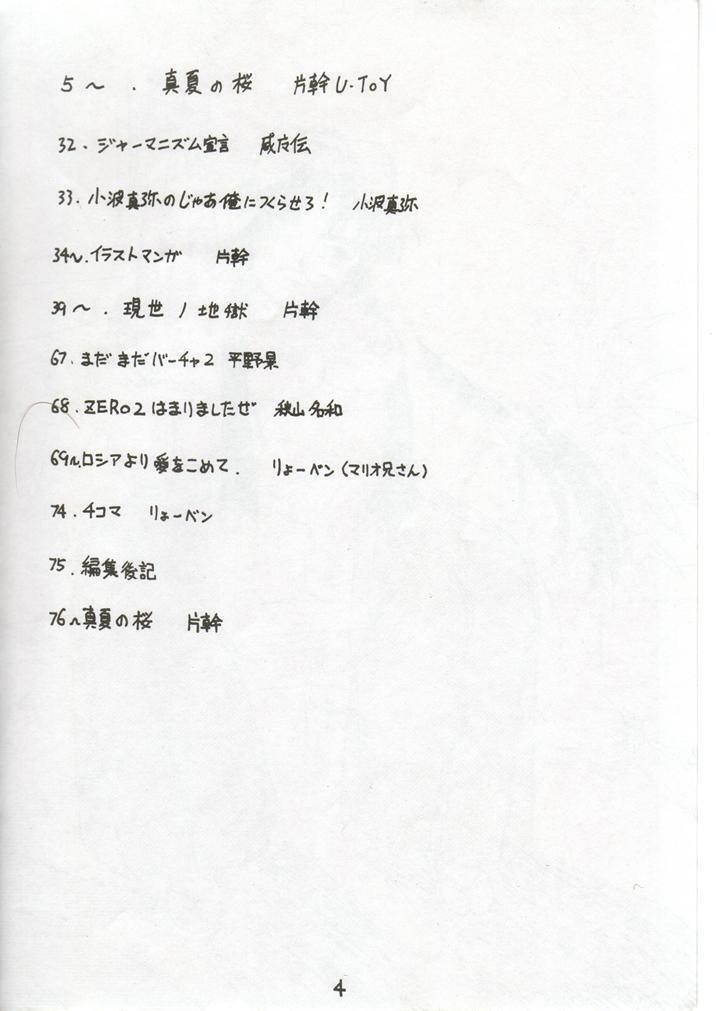 5〜 . 真夏の桜 片幹U-ToY
32. ジャーマニズム宣言 威友伝
33. 小波真弥のじゃあ俺につくらせろ! 小波真弥
34〜.イラストマンガ 片幹
39〜 . 現世ノ地獄 片幹
67. まだまだバーチャ2 平野果
68. ZERO2はまりましたぜ 秋山名和
69〜.ロシアより愛をこめて. りょーベン(マリオ兄さん)
74. 4コマ りょーベン
75. 編集後記
76〜真夏の桜 片幹
4